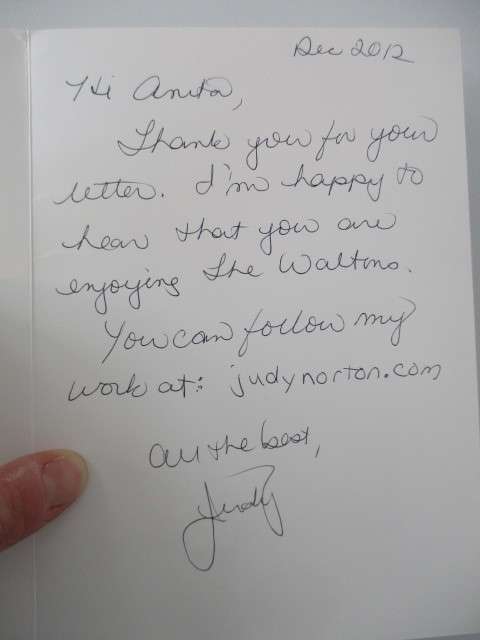 Dec 2012
Hi Anita,
Thank you for your
letter. I'm happy to
hear that you are
enjoying The Waltons.
You can follow my
work at: judynorton.com
All the best,
Judy